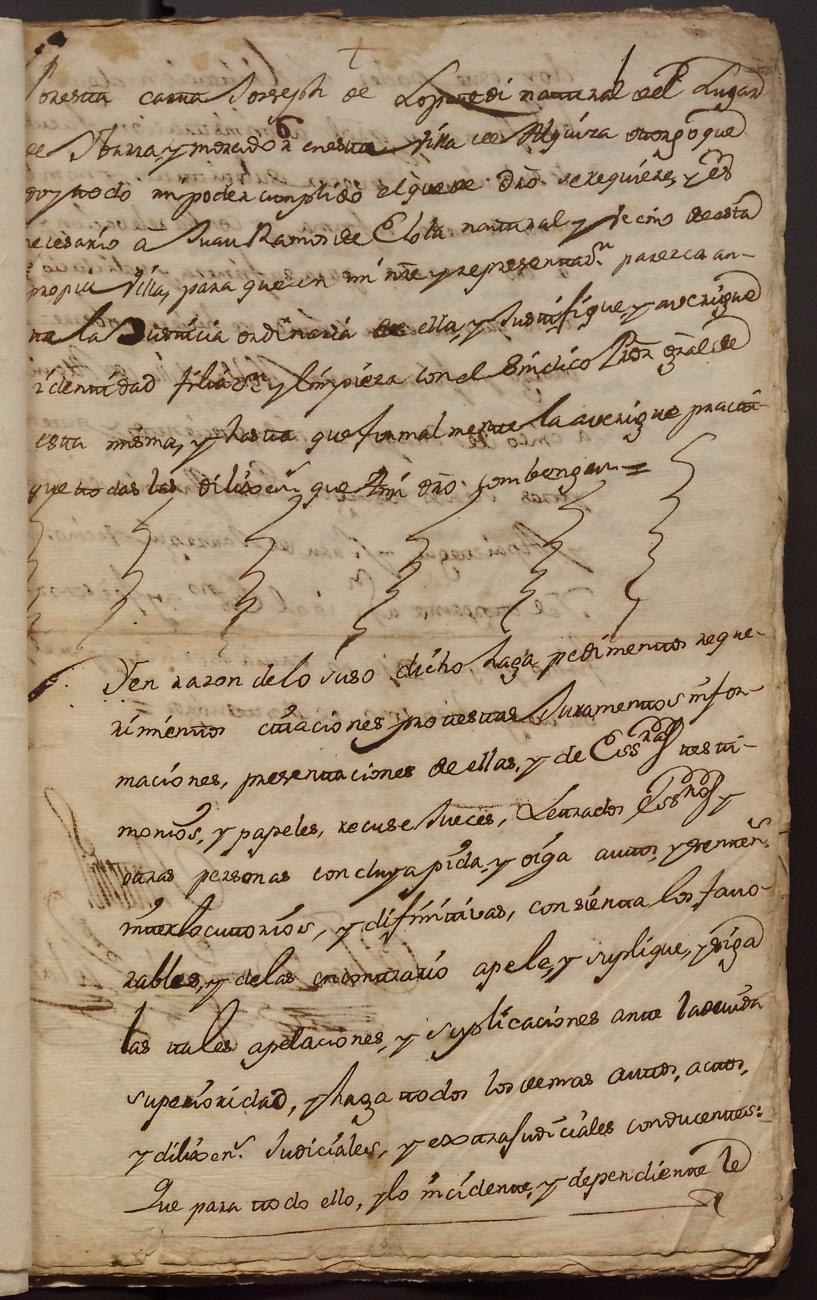 Por esta carta Joseph de Lopetedi natural del Lugar
de Ybarra, y morador en esta Villa de Alguiza otorgo que
doy todo mi poder cumplido el que de dro. se requiere, y es
necesario a Juan Ramos de Elola natural y vecino de esta
propia Villa, para que en mi nre. y representaon. parezca an-
te la Justicia ordinaria de ella, y Justifique, y averigue
identidad filiaon. y limpieza con el Sindico Pror. gral. de
esta misma, y hasta que formalmente la averigue practi-
que todas las dilixens. que a mi dro. combengan =
Yen razon delo suso dicho haga pedimentos reque-
rimientos citaciones protestas Juramentos infor-
maciones, presentaciones de ellas, y de Essras. testi-
monios, y papeles, recuse Jueces, Letrados Essnos. y
otras personas concluya pida, y oiga autos, y senten.s
interlocutorios, y difinitivas, consienta los favo-
rables, y delas encontrario apele, y suplique, y siga
las tales apelaciones, y suplicaciones ante la devida
superioridad, y haga todos los demas autos, actos,
y dilixens. Judiciales, y extrajudiciales conducentes:
Que para todo ello, y lo incidente, y dependiente le